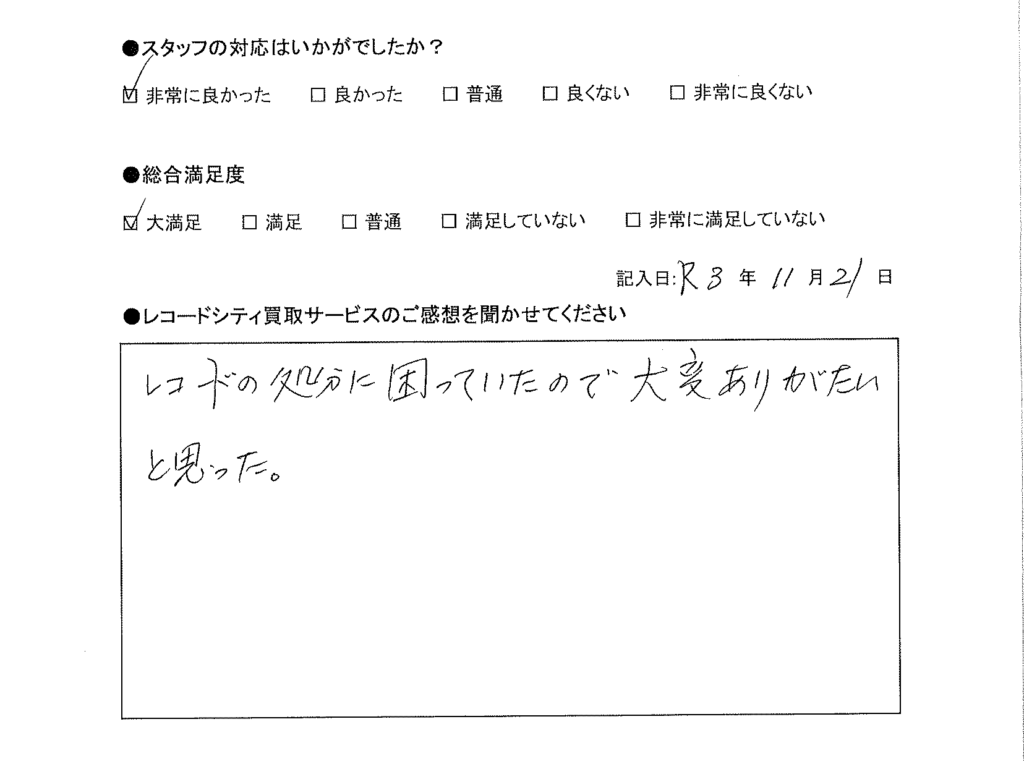 ●スタッフの対応はいかがでしたか？
☑ 非常に良かった ☐ 良かった ☐ 普通 ☐ 良くない ☐ 非常に良くない
●総合満足度
☑ 大満足 ☐ 満足 ☐ 普通 ☐ 満足していない ☐ 非常に満足していない
記入日:R3 年 11 月 21 日
●レコードシティ買取サービスのご感想を聞かせてください
レコードの処分に困っていたので大変ありがたい
と思った。